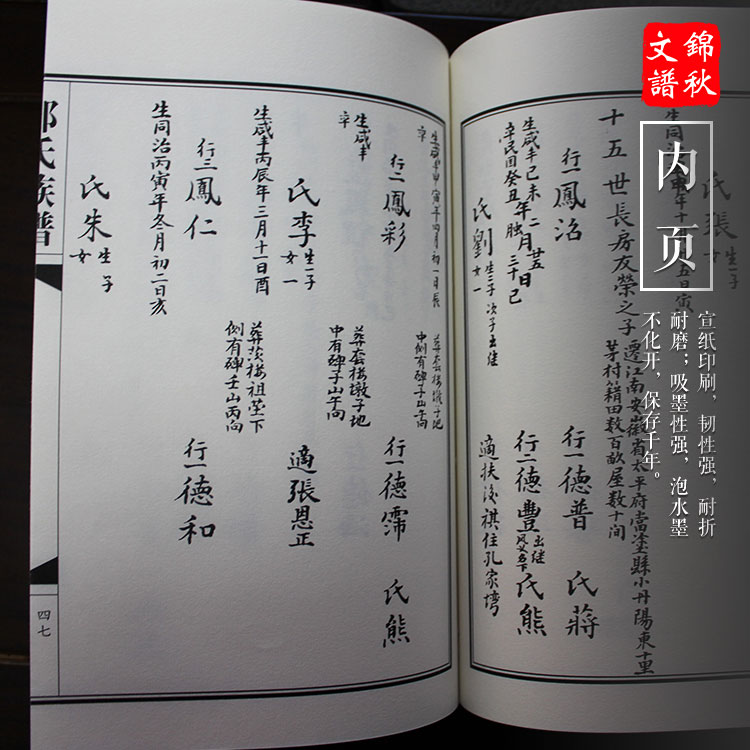 錦秋
文譜
内页
宣纸印刷，韧性强，耐折
耐磨；吸墨性强，泡水墨
不化开，保存千年。
氏張
生同治
十五世長房友榮之子
遷江南安徽省太平府當塗縣小丹陽東十里
茅村籍田數百畝屋數十間
行一鳳治
行一德普 氏蔣
生咸丰己未年二月廿五日
卒民国癸丑年 三十巳
氏劉 生三子次子出继
女一
行二德豐 出继 名下 氏熊
適扶 祺住孔家塆
生咸丰甲寅年四月初一日辰
卒
葬套楼墩子地
中侧有碑子山午向
行二鳳彩
行一德霈 氏熊
生咸丰
卒
葬套楼墩子地
中有碑子山午向
氏李 生一子
女一
適張恩正
生咸丰丙辰年三月十一日酉
葬茨楼祖茔下
侧有碑壬山丙向
行三鳳仁
行一德和
生同治丙寅年冬月初二日亥
氏朱 生子
女
氏族譜
四七